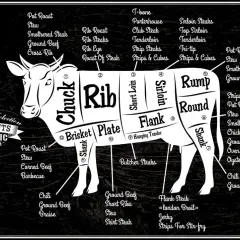 Pot Roast
Stew
Smothered Steak
Ground Beef
Cross Rib
Rib Roast
Rib Steaks
Rib Eye
Roast Of Steak
T-bone
Porterhouse
Club Steak
Tenderloin
Strip Steaks
Strips & Cubes
Sirloin Steaks
Top Sirloin
Tenderloin
Tri-tip
Strips & Cubes
Chuck
Rib
Short Loin
Sirloin
Rump
Round
Brisket
Plate
Flank
Hanging Tender
Shank
Shank
Pot Roast
Stew
Corned Beef
Barbecue
Butcher Steaks
Chili
Ground Beef
Braise
Ground Beef
Short Ribs
Stew
Skirt Steak
Flank Steak
«London Broil»
Jerky
Strips For Stir-fry